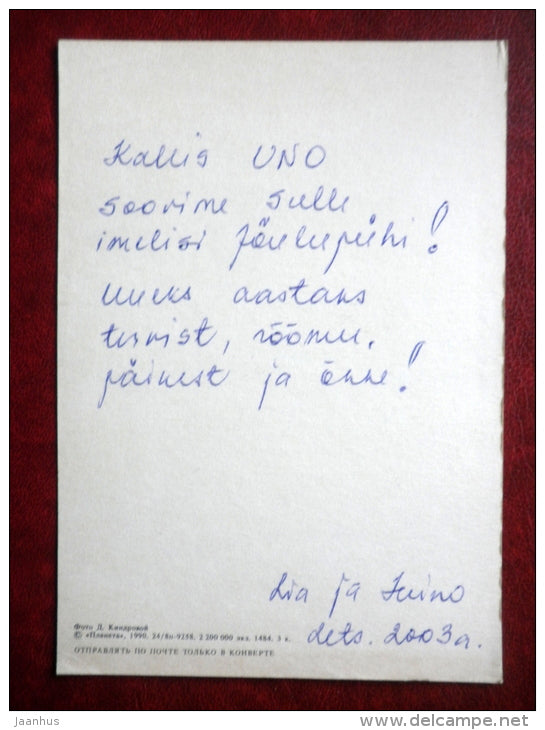 Kallis UNO
soovime Sulle
imelisi Jõulupühi!
Uueks aastaks
tervist, rõõmu,
päikest ja õnne!
Lia ja Heino
dets. 2003a.
Фото Д. Киндровой
© «Планета», 1990. 24/8н-9258. 2 200 000 экз. 1484. 3 к.
ОТПРАВЛЯТЬ ПО ПОЧТЕ ТОЛЬКО В КОНВЕРТЕ
jaanhus
www.delcampe.net